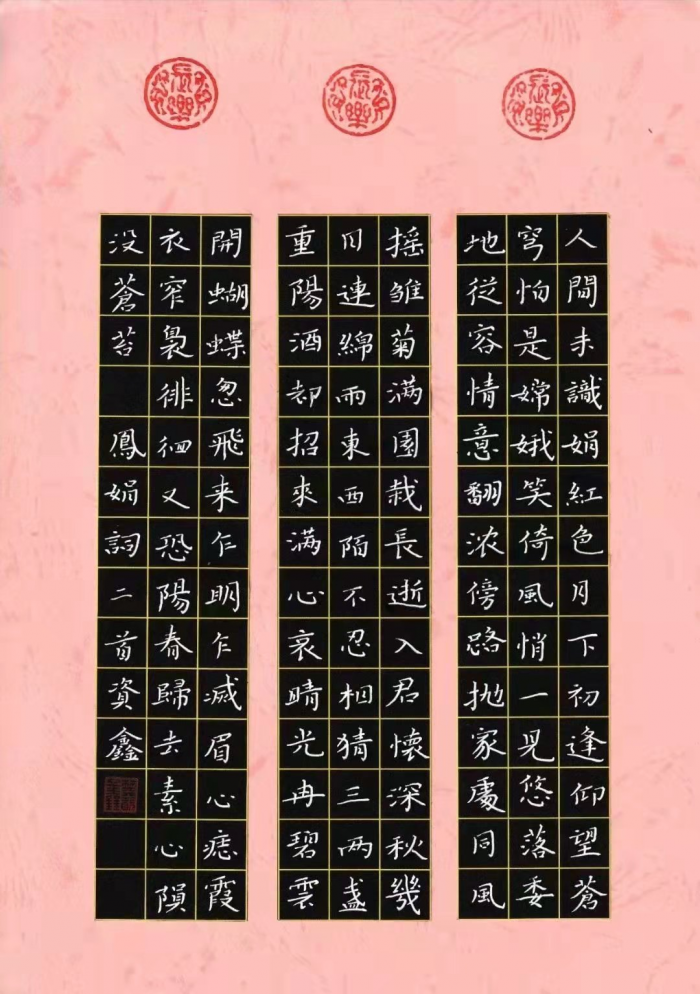 人間未識娟紅色月下初逢仰望蒼
穹怕是嫦娥笑倚風悄一見悠落委
地從容情意翻浓傍路抛家處同風
摇雏菊满園栽長逝入君懷深秋幾
日連綿雨東西陌不忍相猜三两盏
重陽酒却招來满心哀晴光冉碧雲
開蝴蝶忽飛来乍明乍滅眉心痣霞
衣窄裊徘徊又恐陽春歸去素心隕
没蒼苔 鳳娟詞二首資鑫